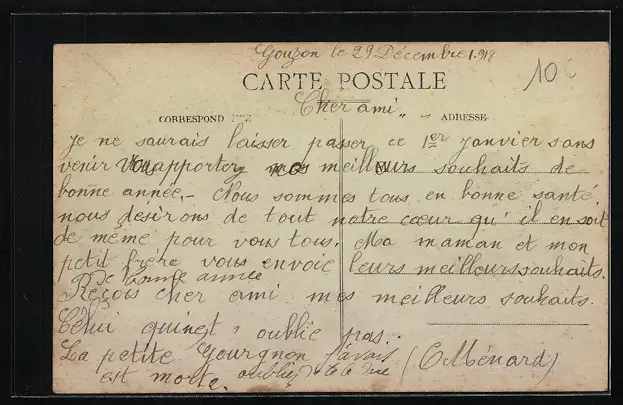 Gouzon le 29 Décembre 1917
10
CARTE POSTALE
Cher ami,
CORRESPONDENCE
ADRESSE
Je ne saurais laisser passer ce 1er janvier sans
venir vous apporter mes meilleurs souhaits de
bonne année. Nous sommes tous en bonne santé
nous désirons de tout notre cœur qu'il en soit
de même pour vous tous. Ma maman et mon
petit frère vous envoie leurs meilleurs souhaits.
De bonne année
Reçois cher ami mes meilleurs souhaits.
Celui qui n'est oublie pas.
La petite Gourgnon j'avais (C Ménard)
est morte. oublier de te le